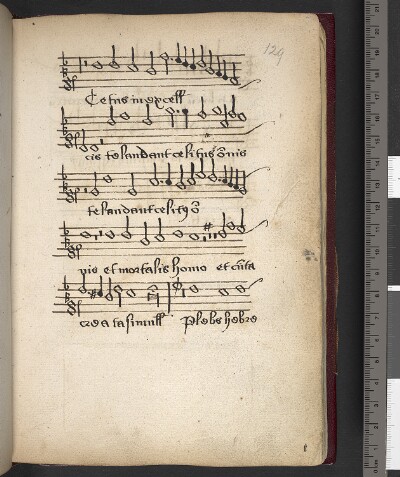 129
Cetus in excell
cis te laudant celitus omis
te laudant celitus o
nis et mortalis homo et cuncta
creata simull Plebs hebre